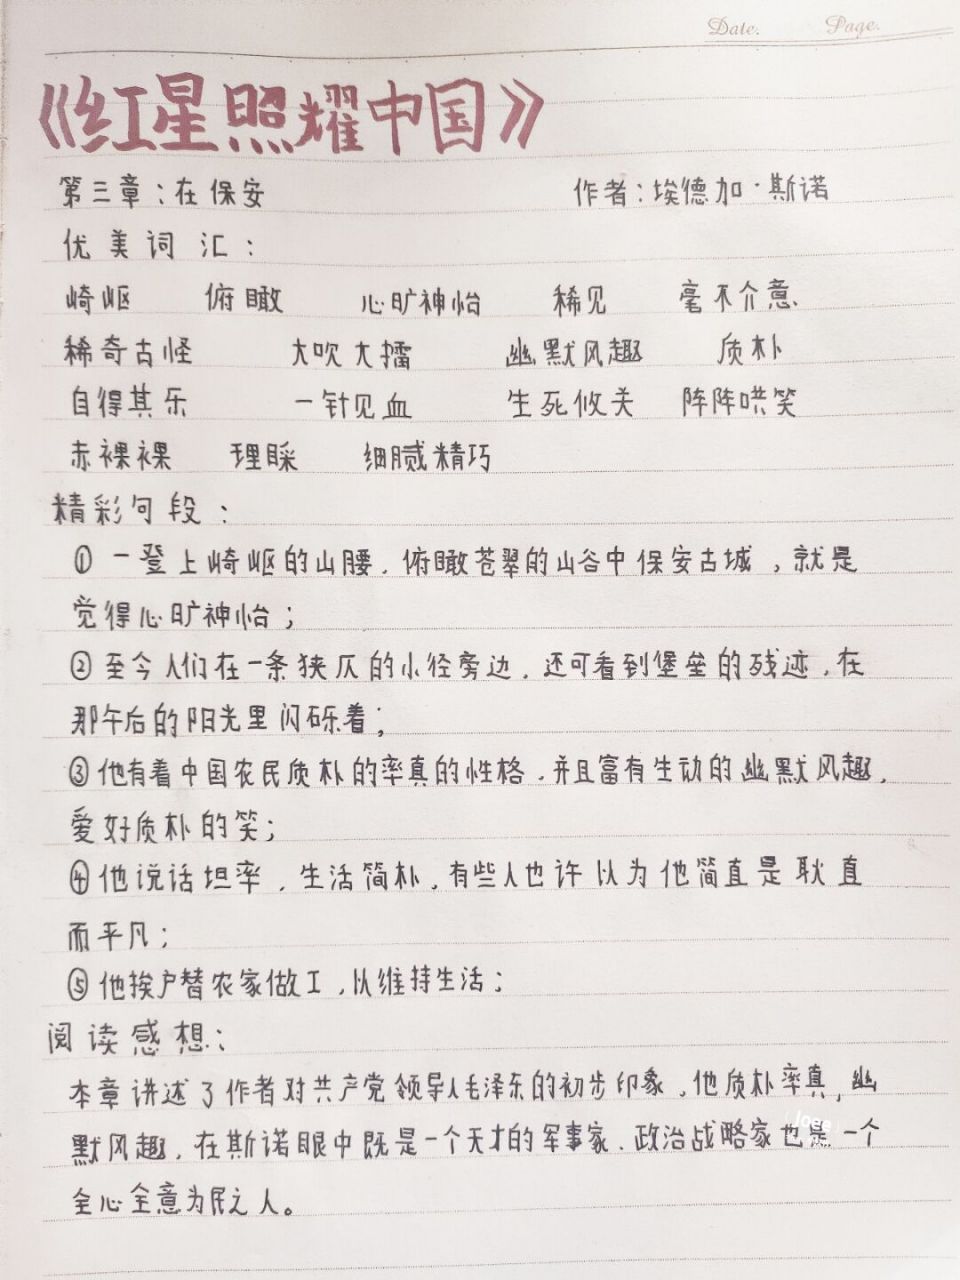 Date. Page.
《红星照耀中国》
第三章：在保安 作者：埃德加·斯诺
优美词汇：
崎岖 俯瞰 心旷神怡 稀见 毫不介意
稀奇古怪 大吹大擂 幽默风趣 质朴
自得其乐 一针见血 生死攸关 阵阵哄笑
赤裸裸 理睬 细腻精巧
精彩句段：
① 一登上崎岖的山腰，俯瞰苍翠的山谷中保安古城，就是
觉得心旷神怡；
② 至今人们在一条狭仄的小径旁边，还可看到堡垒的残迹，在
那午后的阳光里闪砾着；
③ 他有着中国农民质朴的率真的性格，并且富有生动的幽默风趣，
爱好质朴的笑；
④ 他说话坦率，生活简朴，有些人也许以为他简直是耿直
而平凡；
⑤ 他挨户替农家做工，以维持生活；
阅读感想：
本章讲述了作者对共产党领导人毛泽东的初步印象，他质朴率真，幽
默风趣，在斯诺眼中既是一个天才的军事家、政治战略家也是一个
全心全意为民之人。